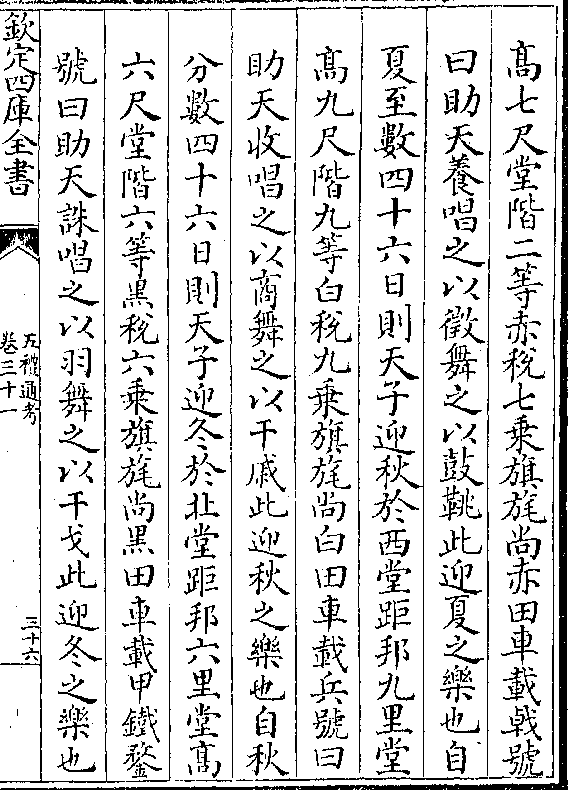 髙七尺堂階二等赤稅七乗旗旄尚赤田車載㦸號
曰助天養唱之以徵舞之以鼓鞉此迎夏之樂也自
夏至數四十六日則天子迎秋於西堂距邦九里堂
髙九尺階九等白稅九乗旗旄尚白田車載兵號曰
助天收唱之以商舞之以干戚此迎秋之樂也自秋
分數四十六日則天子迎冬於北堂距邦六里堂髙
六尺堂階六等黒稅六乗旗旄尚黒田車載甲鐵鍪
號曰助天誅唱之以羽舞之以干戈此迎冬之樂也
欽定四庫全書
五禮通考
卷三十一
三十六